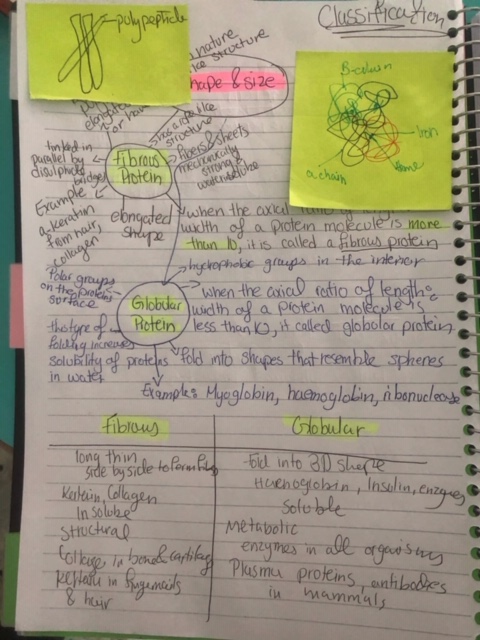 Classification
polypeptide
nature
like structure
shape & size
B-column
Iron
Heme
a chain
elongated
structure
Fibrous
Protein
fibers & sheets
mechanically
strong &
linked in
parallel by
disulphide
bridges
Example
a-keratin
from hair,
collagen
elongated
shape
when the axial ratio of length:
width of a protein molecule is more
than 10, it is called a fibrous protein
hydrophobic groups in the interior
Polar groups
on the proteins
surface
Globular
Protein
when the axial ratio of length:
width of a protein molecule is
less than 10, it called globolar protein
the type of
folding increases
solubility of proteins
in water
fold into shapes that resemble spheres
Examples Myoglobin, haemoglobin, ribonuclease
Fibrous
long thin
side by side to form fibres
Keratin, Collagen
Insoluble
Structural
Collagen in bone & cartilage
Keratin in fingernails
& hair
Globular
fold into 3D shape
Haemoglobin, Insulin, enzymes
soluble
Metabolic
enzymes in all organisms
Plasma proteins, antibodies
in mammals